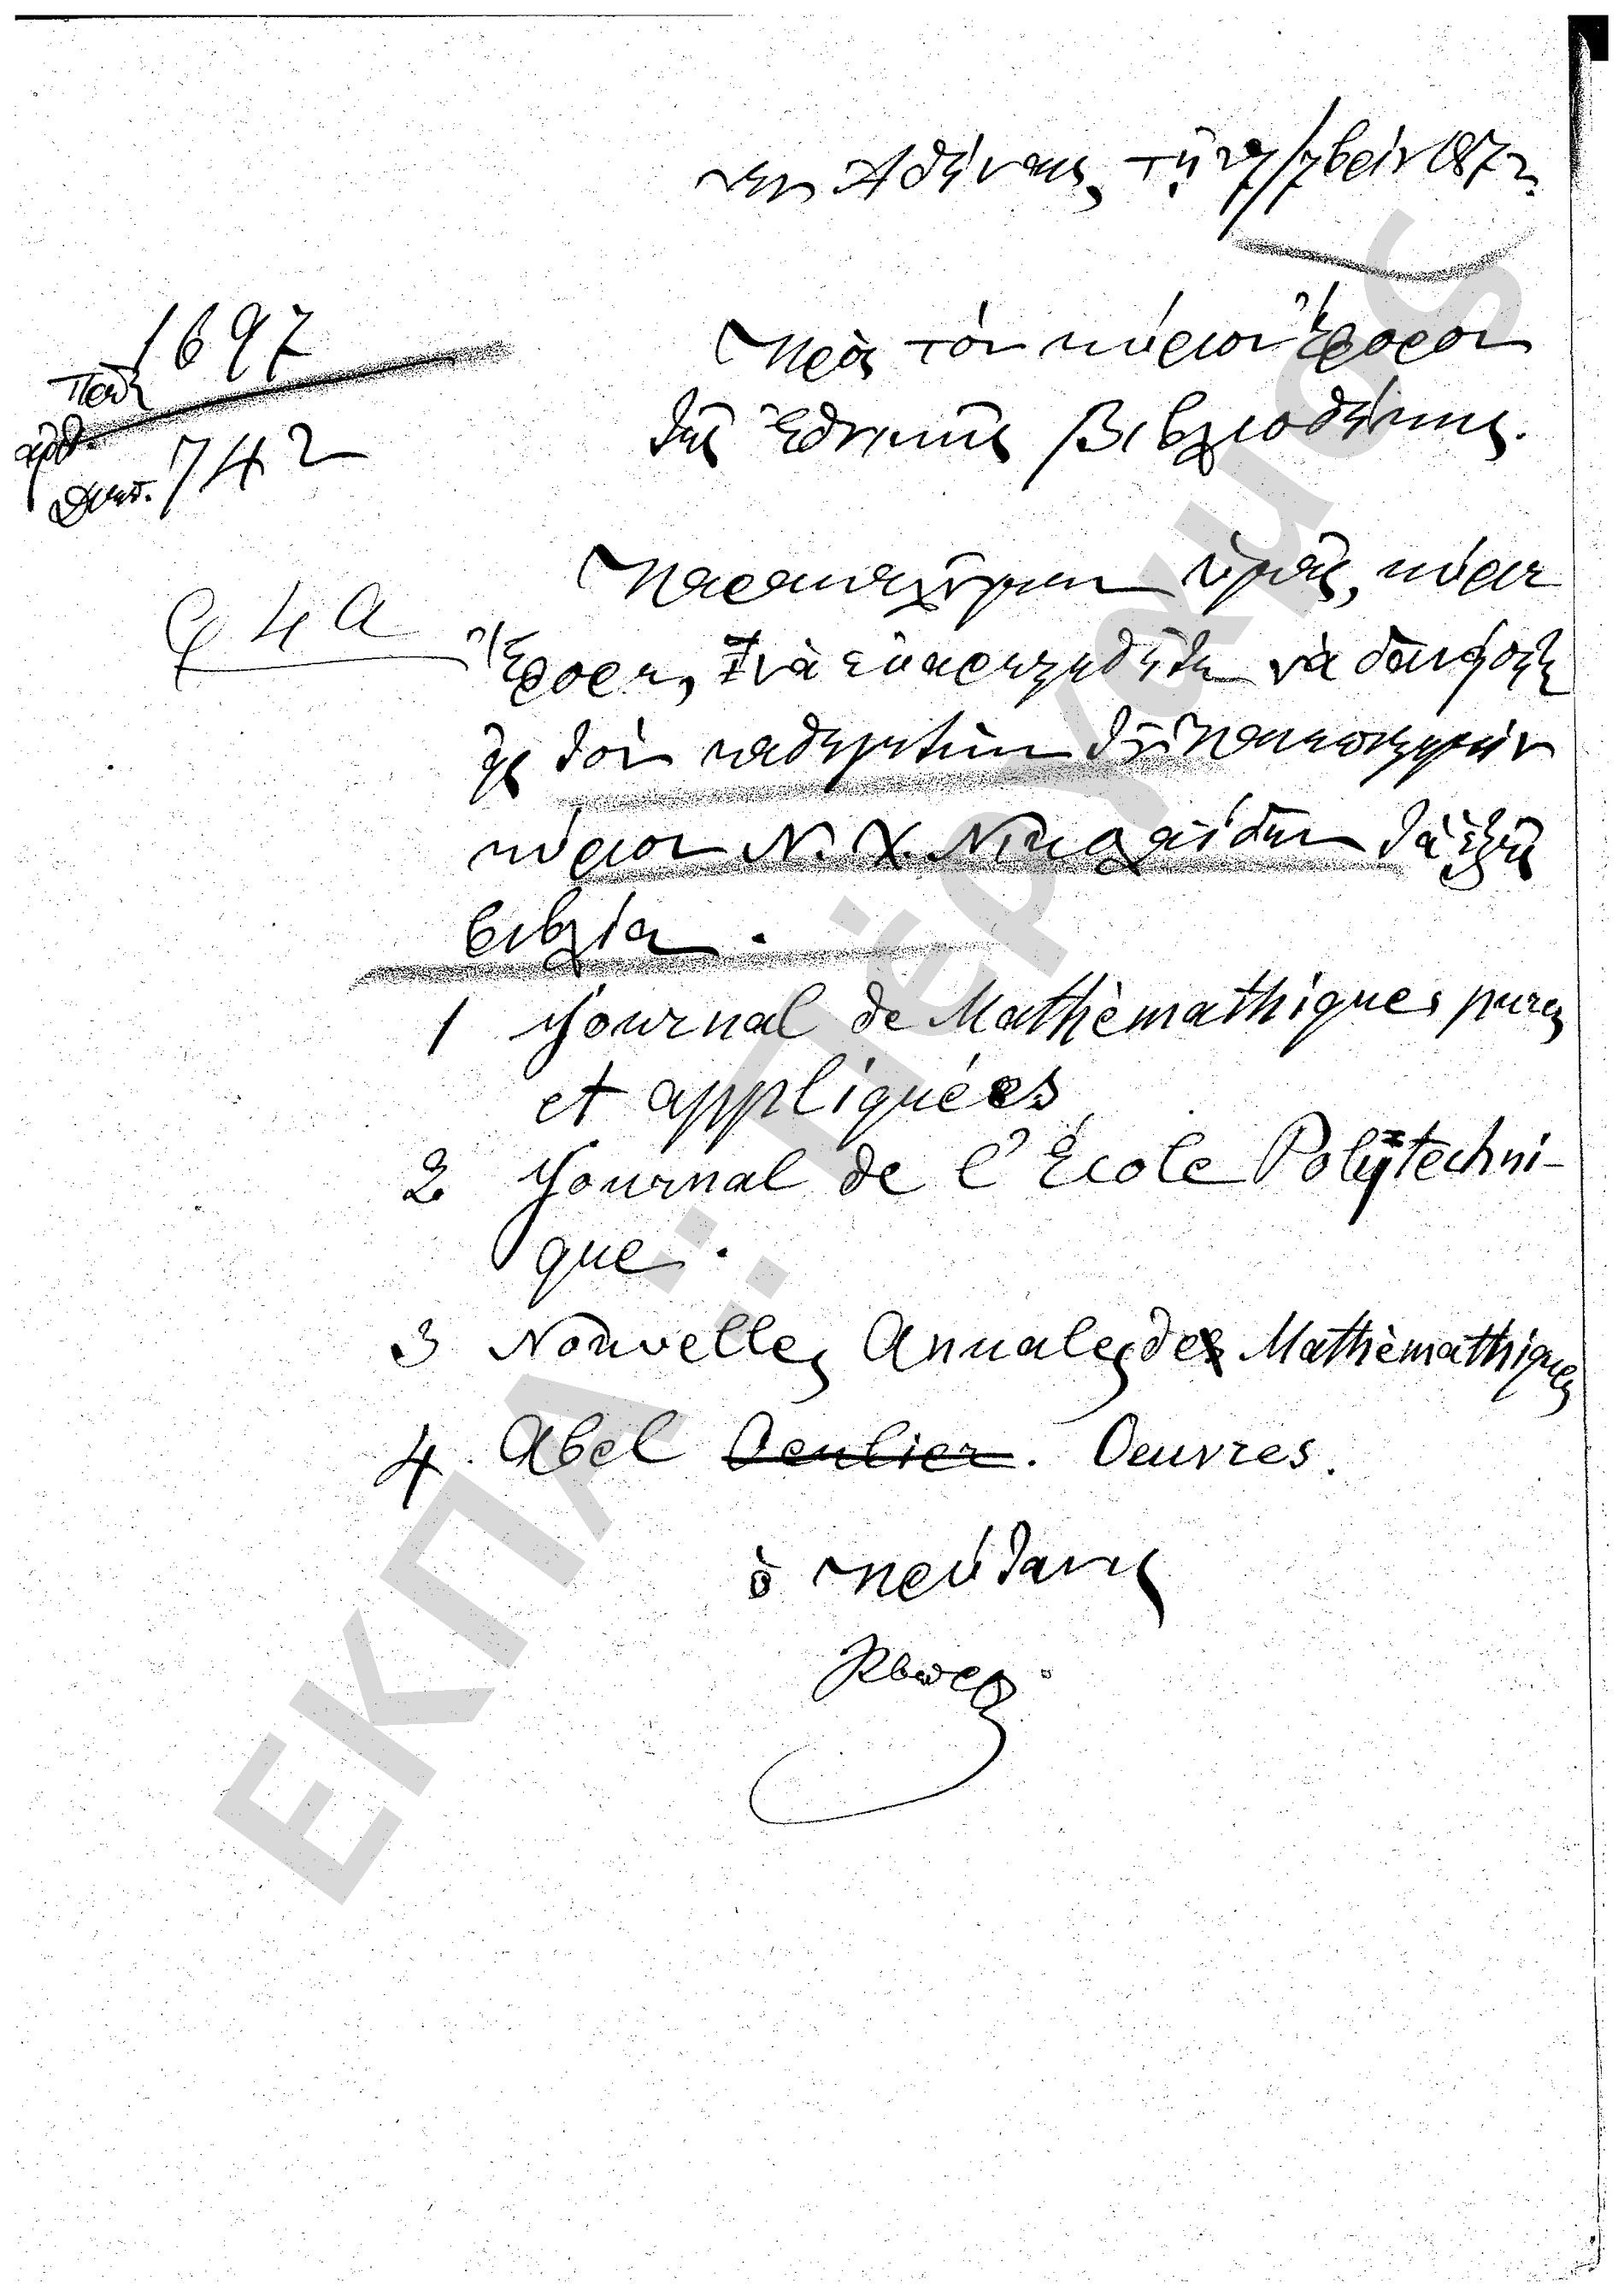 ἐν Ἀθήναις, τῇ 27/7βρίου 1872.
1697
Πρωτ.
ἀριθ.
Διεκπ. 742
Πρὸς τὸν κύριον Ἔφορον
τῆς Ἐθνικῆς βιβλιοθήκης.
Q 4 a
Παρακαλοῦμεν ὑμᾶς, κύριε
Ἔφορε, ἵνα εὐαρεστηθῆτε νὰ δανείσητε
εἰς τὸν καθηγητὴν τοῦ Πανεπιστημίου
κύριον Ν. Χ. Νικολαΐδην τὰ ἑξῆς
βιβλία.
1 Journal de Mathèmathiques pures
et appliquées
2 Journal de l'École Polytechni-
que.
3 Nouvelles Annales de Mathèmathiques
4. Abel Oeulier. Oeuvres.
ὁ Πρύτανις
ΕΚΠΑ:: Πέργαμος